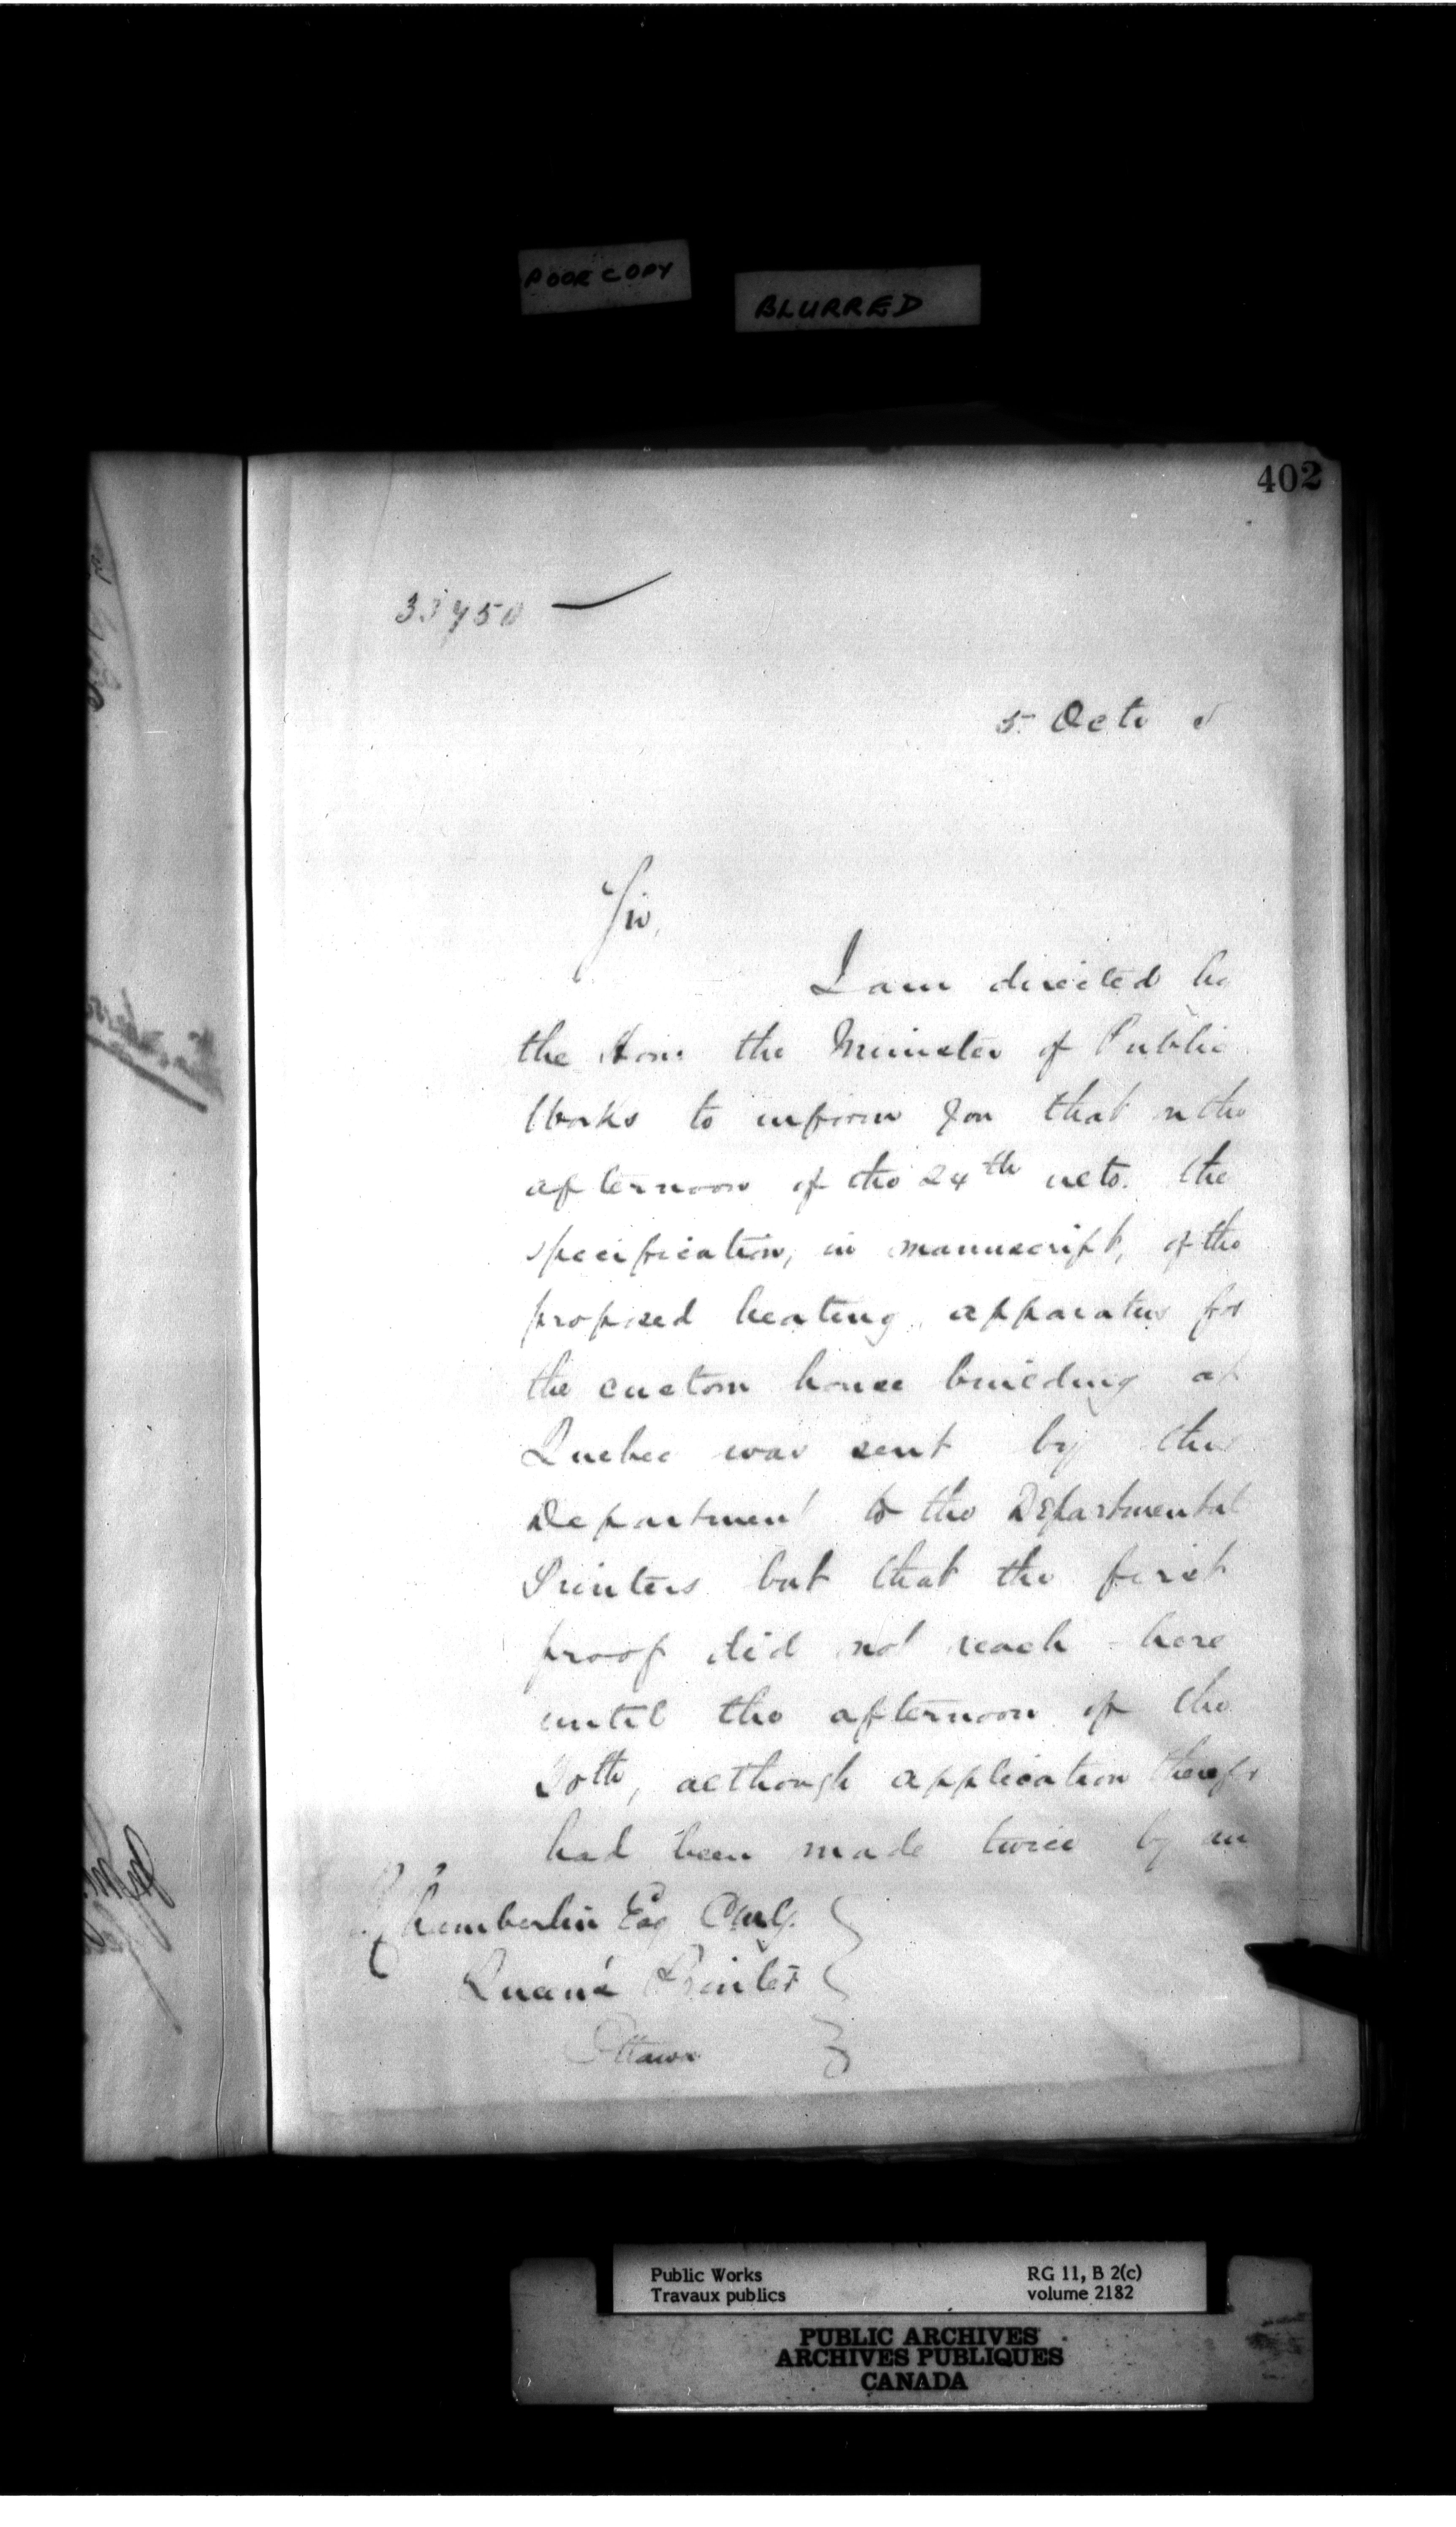 POOR COPY
BLURRED
402
5 Octo
Sir,
I am directed by
the Hon: the Minister of Public
Works to inform you that on the
afternoon of the 24th ulto. the
specification, in manuscript, of the
proposed heating apparatus for
the custom house building at
Quebec was sent by this
Department to the Departmental
Printers but that the first
proof did not reach here
until the afternoon of the
30th, although application therefor
had been made twice by an
Chamberlin Esq C.M.G.
Queen's Printer
Ottawa
Public Works
Travaux publics
RG 11, B 2(c)
volume 2182
PUBLIC ARCHIVES
ARCHIVES PUBLIQUES
CANADA